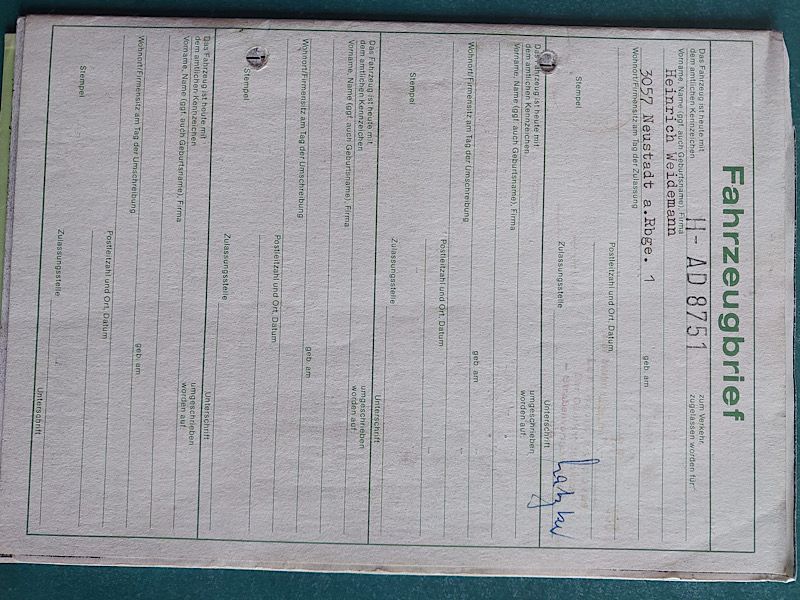 Fahrzeugbrief
Das Fahrzeug ist heute mit
dem amtlichen Kennzeichen H-AD 8751 zum Verkehr
zugelassen worden für:
Vorname, Name (ggf. auch Geburtsname), Firma
Heinrich Weidemann
geb. am
3057 Neustadt a.Rbge. 1
Wohnort/Firmensitz am Tag der Zulassung
Postleitzahl und Ort, Datum
Stempel
Zulassungsstelle
Unterschrift
Das Fahrzeug ist heute mit
dem amtlichen Kennzeichen umgeschrieben
worden auf:
Vorname, Name (ggf. auch Geburtsname), Firma
geb. am
Wohnort/Firmensitz am Tag der Umschreibung
Postleitzahl und Ort, Datum
Stempel
Zulassungsstelle
Unterschrift
Das Fahrzeug ist heute mit
dem amtlichen Kennzeichen umgeschrieben
worden auf:
Vorname, Name (ggf. auch Geburtsname), Firma
geb. am
Wohnort/Firmensitz am Tag der Umschreibung
Postleitzahl und Ort, Datum
Stempel
Zulassungsstelle
Unterschrift
Das Fahrzeug ist heute mit
dem amtlichen Kennzeichen umgeschrieben
worden auf:
Vorname, Name (ggf. auch Geburtsname), Firma
geb. am
Wohnort/Firmensitz am Tag der Umschreibung
Postleitzahl und Ort, Datum
Stempel
Zulassungsstelle
Unterschrift